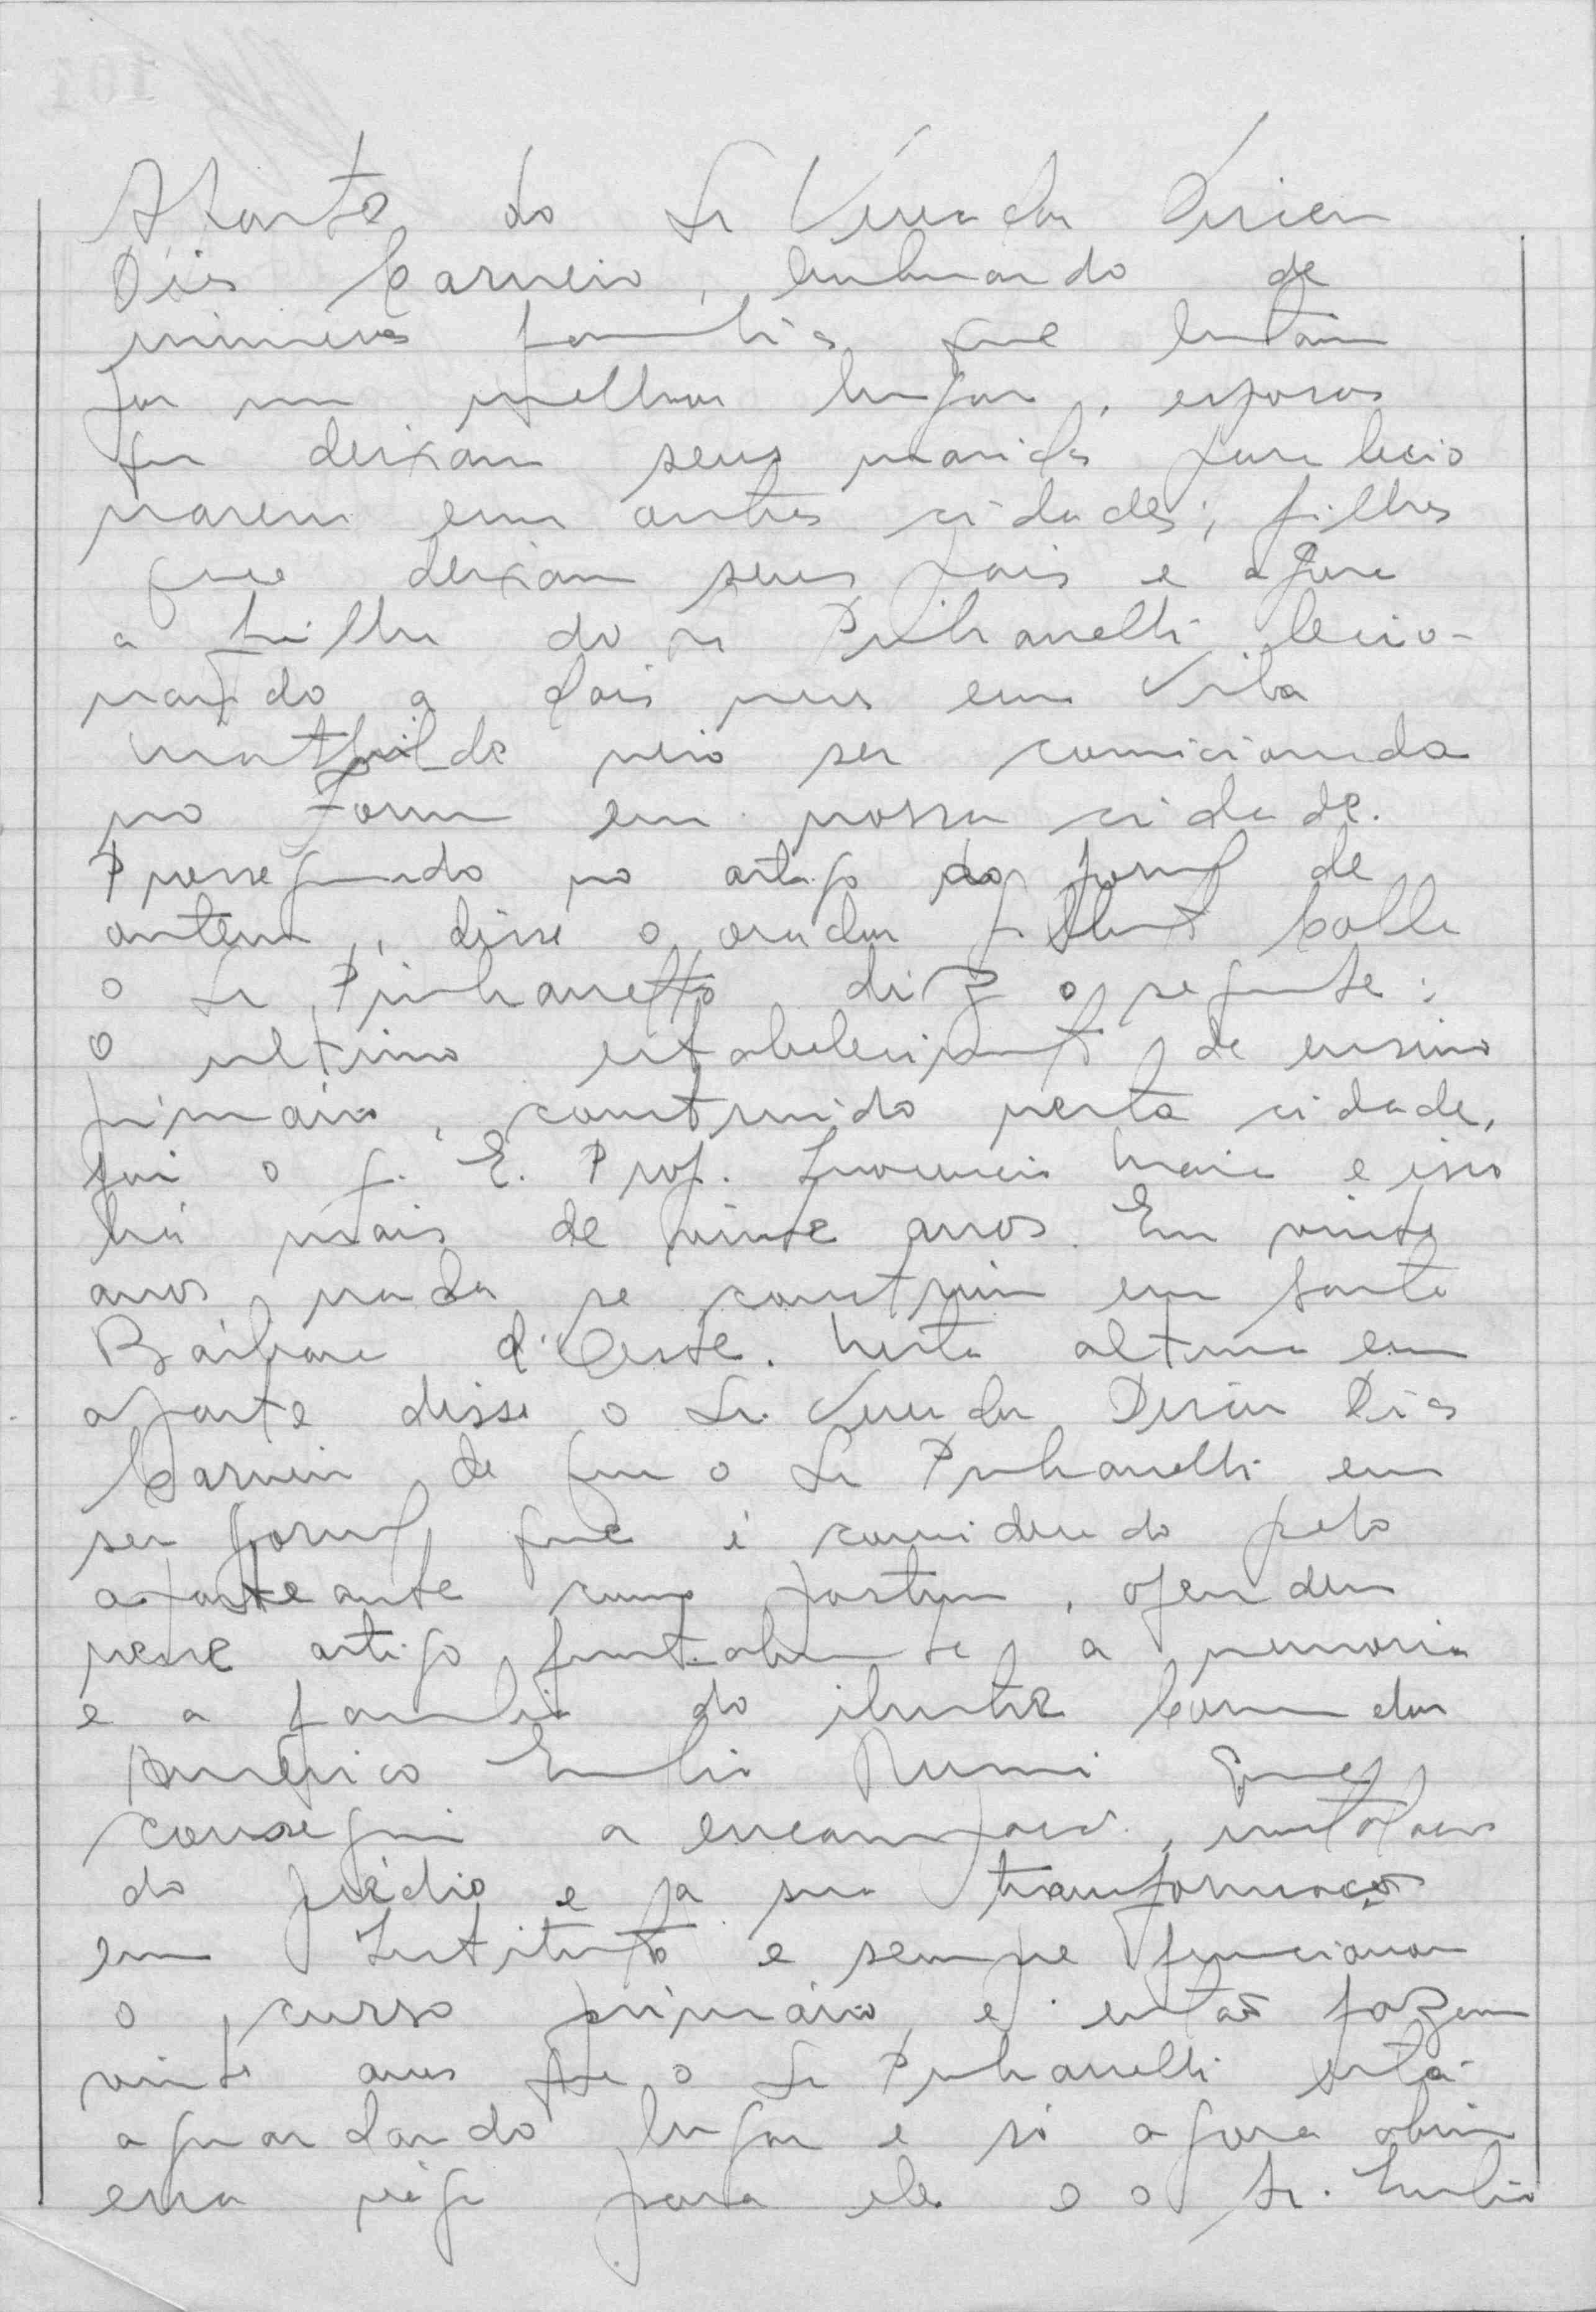 Aparte do Sr Vereador Dirceu
Dias Carneiro, lembrando de
inúmeras familias que lutam
por um melhor lugar, esposas
que deixam seus maridos para lecio
narem em outras cidades; filhos
que deixam seus pais e agora
a filha do sr Pinhanelli lecio-
nando a dois meses em Vila
Mathilde veio ser comicionada
no Forum em nossa cidade.
Prosseguindo no artigo do jornal de
ontem, disse o orador que Calle
o Sr Pinhanelli diz o seguinte:
o ultimo estabelecimento de ensino
primário, construido nesta cidade,
foi o g. E. Prof. Inocencio Maia e isso
há mais de vinte anos. Em vinte
anos nada se construiu em Santa
Bárbara d'Oeste. Nesta altura em
aparte disse o Sr. Vereador Dirceu Dias
Carneiro de que o Sr Pinhanelli em
seu jornal que é considerado pelo
aparteante como pasquim, ofendeu
nesse artigo frontalmente a memoria
e a familia do ilustre Comendador
Américo Emilio Romi que
conseguiu a encampação, instalação
do prédio e já sua transformação
em Instituto e sempre funcionou
o curso primário, e então fazem
vinte anos que o Sr Pinhanelli está
aguardando lugar e só agora abriu
essa vaga para ele e o Sr. Emilio